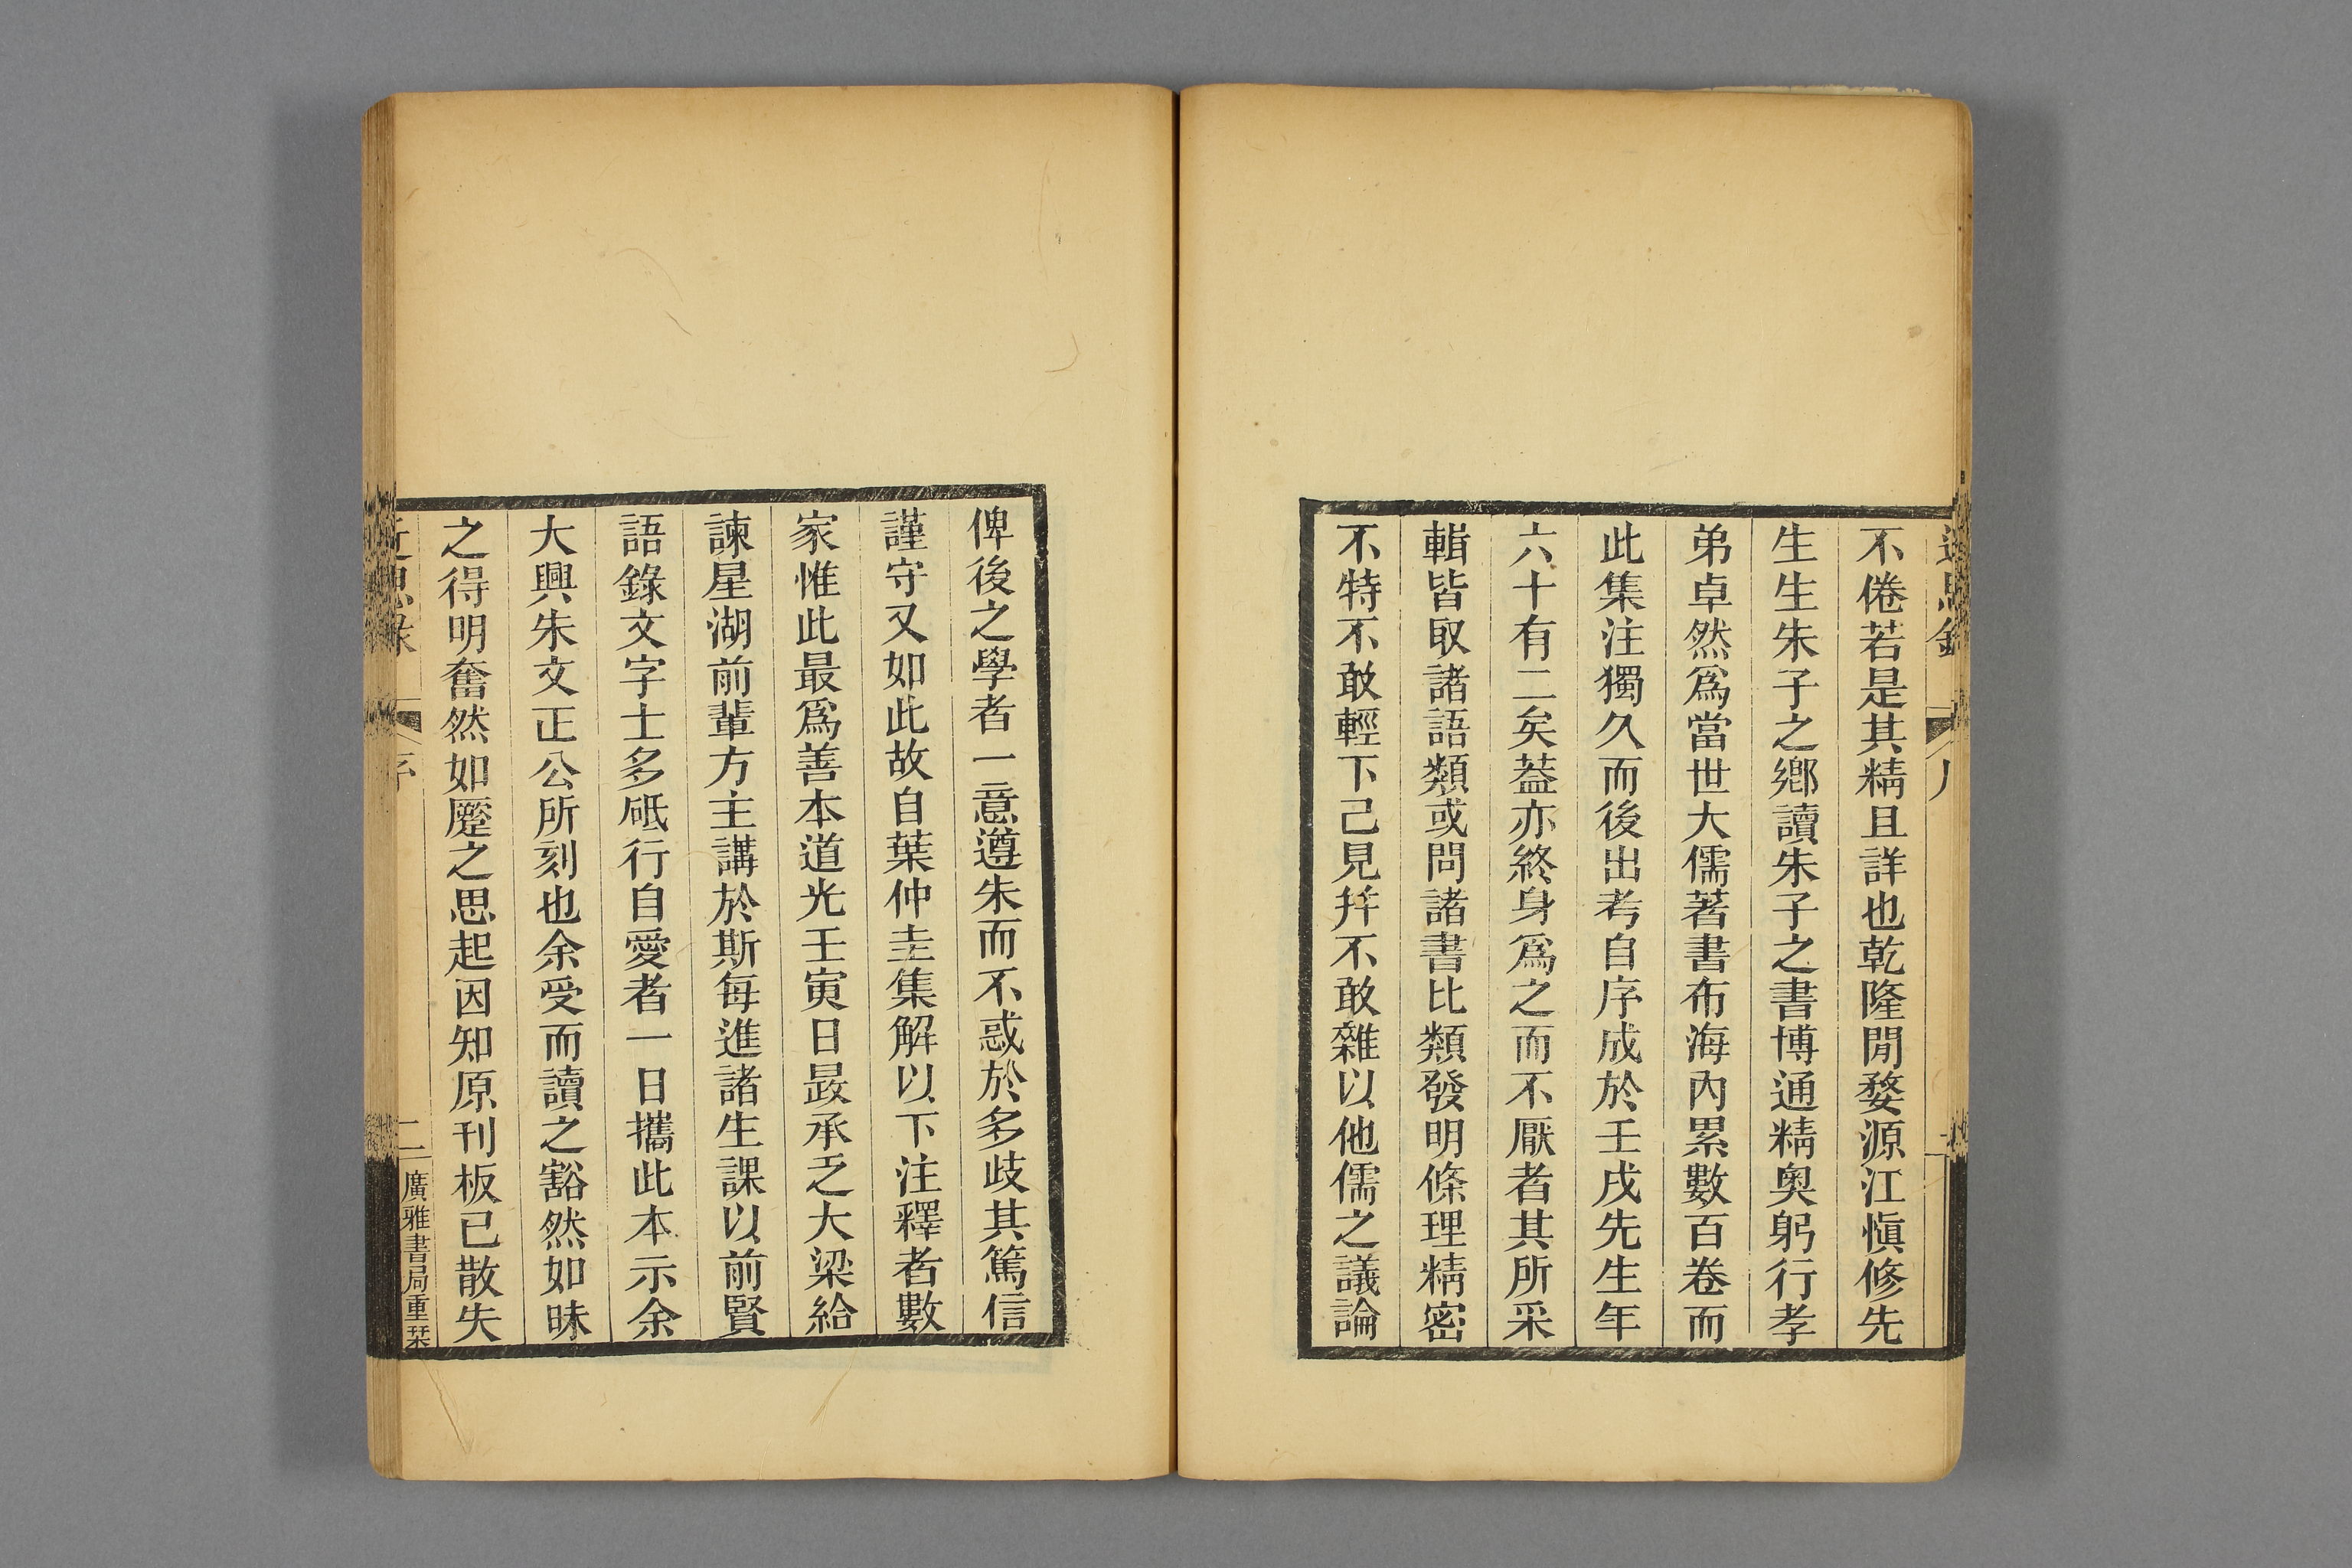 不倦若是其精且詳也乾隆閒婺源江愼修先
生生朱子之鄉讀朱子之書博通精奧躬行孝
弟卓然爲當世大儒著書布海內累數百卷而
此集注獨久而後出考自序成於壬戌先生年
六十有二矣葢亦終身爲之而不厭者其所采
輯皆取諸語類或問諸書比類發明條理精密
不特不敢輕下己見幷不敢雜以他儒之議論
俾後之學者一意遵朱而不惑於多歧其篤信
謹守又如此故自葉仲圭集解以下注釋者數
家惟此最爲善本道光壬寅日晸承乏大梁給
諫星湖前輩方主講於斯每進諸生課以前賢
語錄文字士多砥行自愛者一日攜此本示余
大興朱文正公所刻也余受而讀之豁然如昧
之得明奮然如壓之思起因知原刊板已散失
近思錄
序
二
廣雅書局重栞